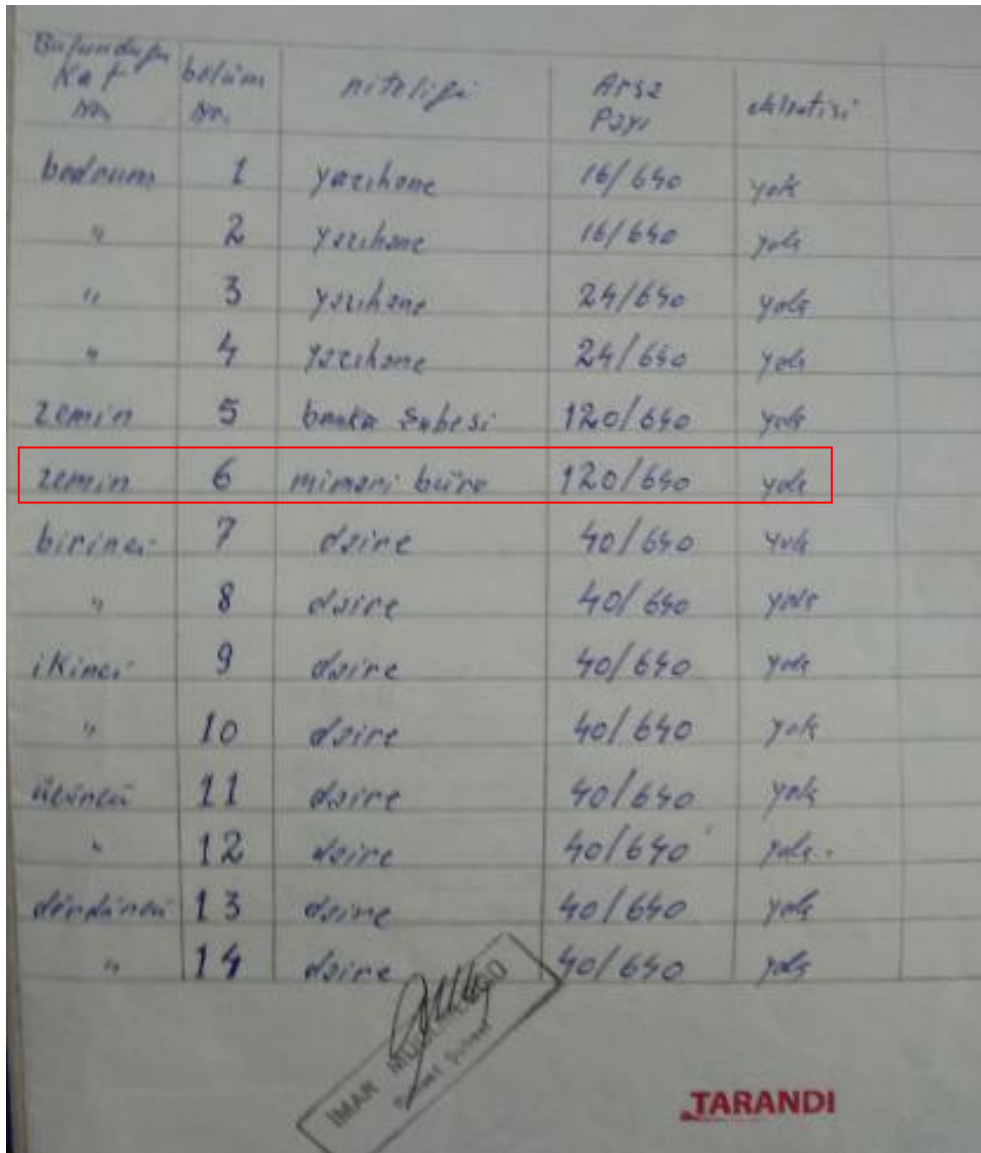 Bulunduğu
Kat bölüm niteliği Arsa eklentisi
No. No. Payı
bodrum 1 yazıhane 16/640 yok
" 2 yazıhane 16/640 yok
" 3 yazıhane 24/640 yok
" 4 yazıhane 24/640 yok
zemin 5 banka şubesi 120/640 yok
zemin 6 mimari büro 120/640 yok
birinci 7 daire 40/640 yok
" 8 daire 40/640 yok
ikinci 9 daire 40/640 yok
" 10 daire 40/640 yok
üçüncü 11 daire 40/640 yok
" 12 daire 40/640 yok.
dördüncü 13 daire 40/640 yok
" 14 daire 40/640 yok
İMAR
TARANDI